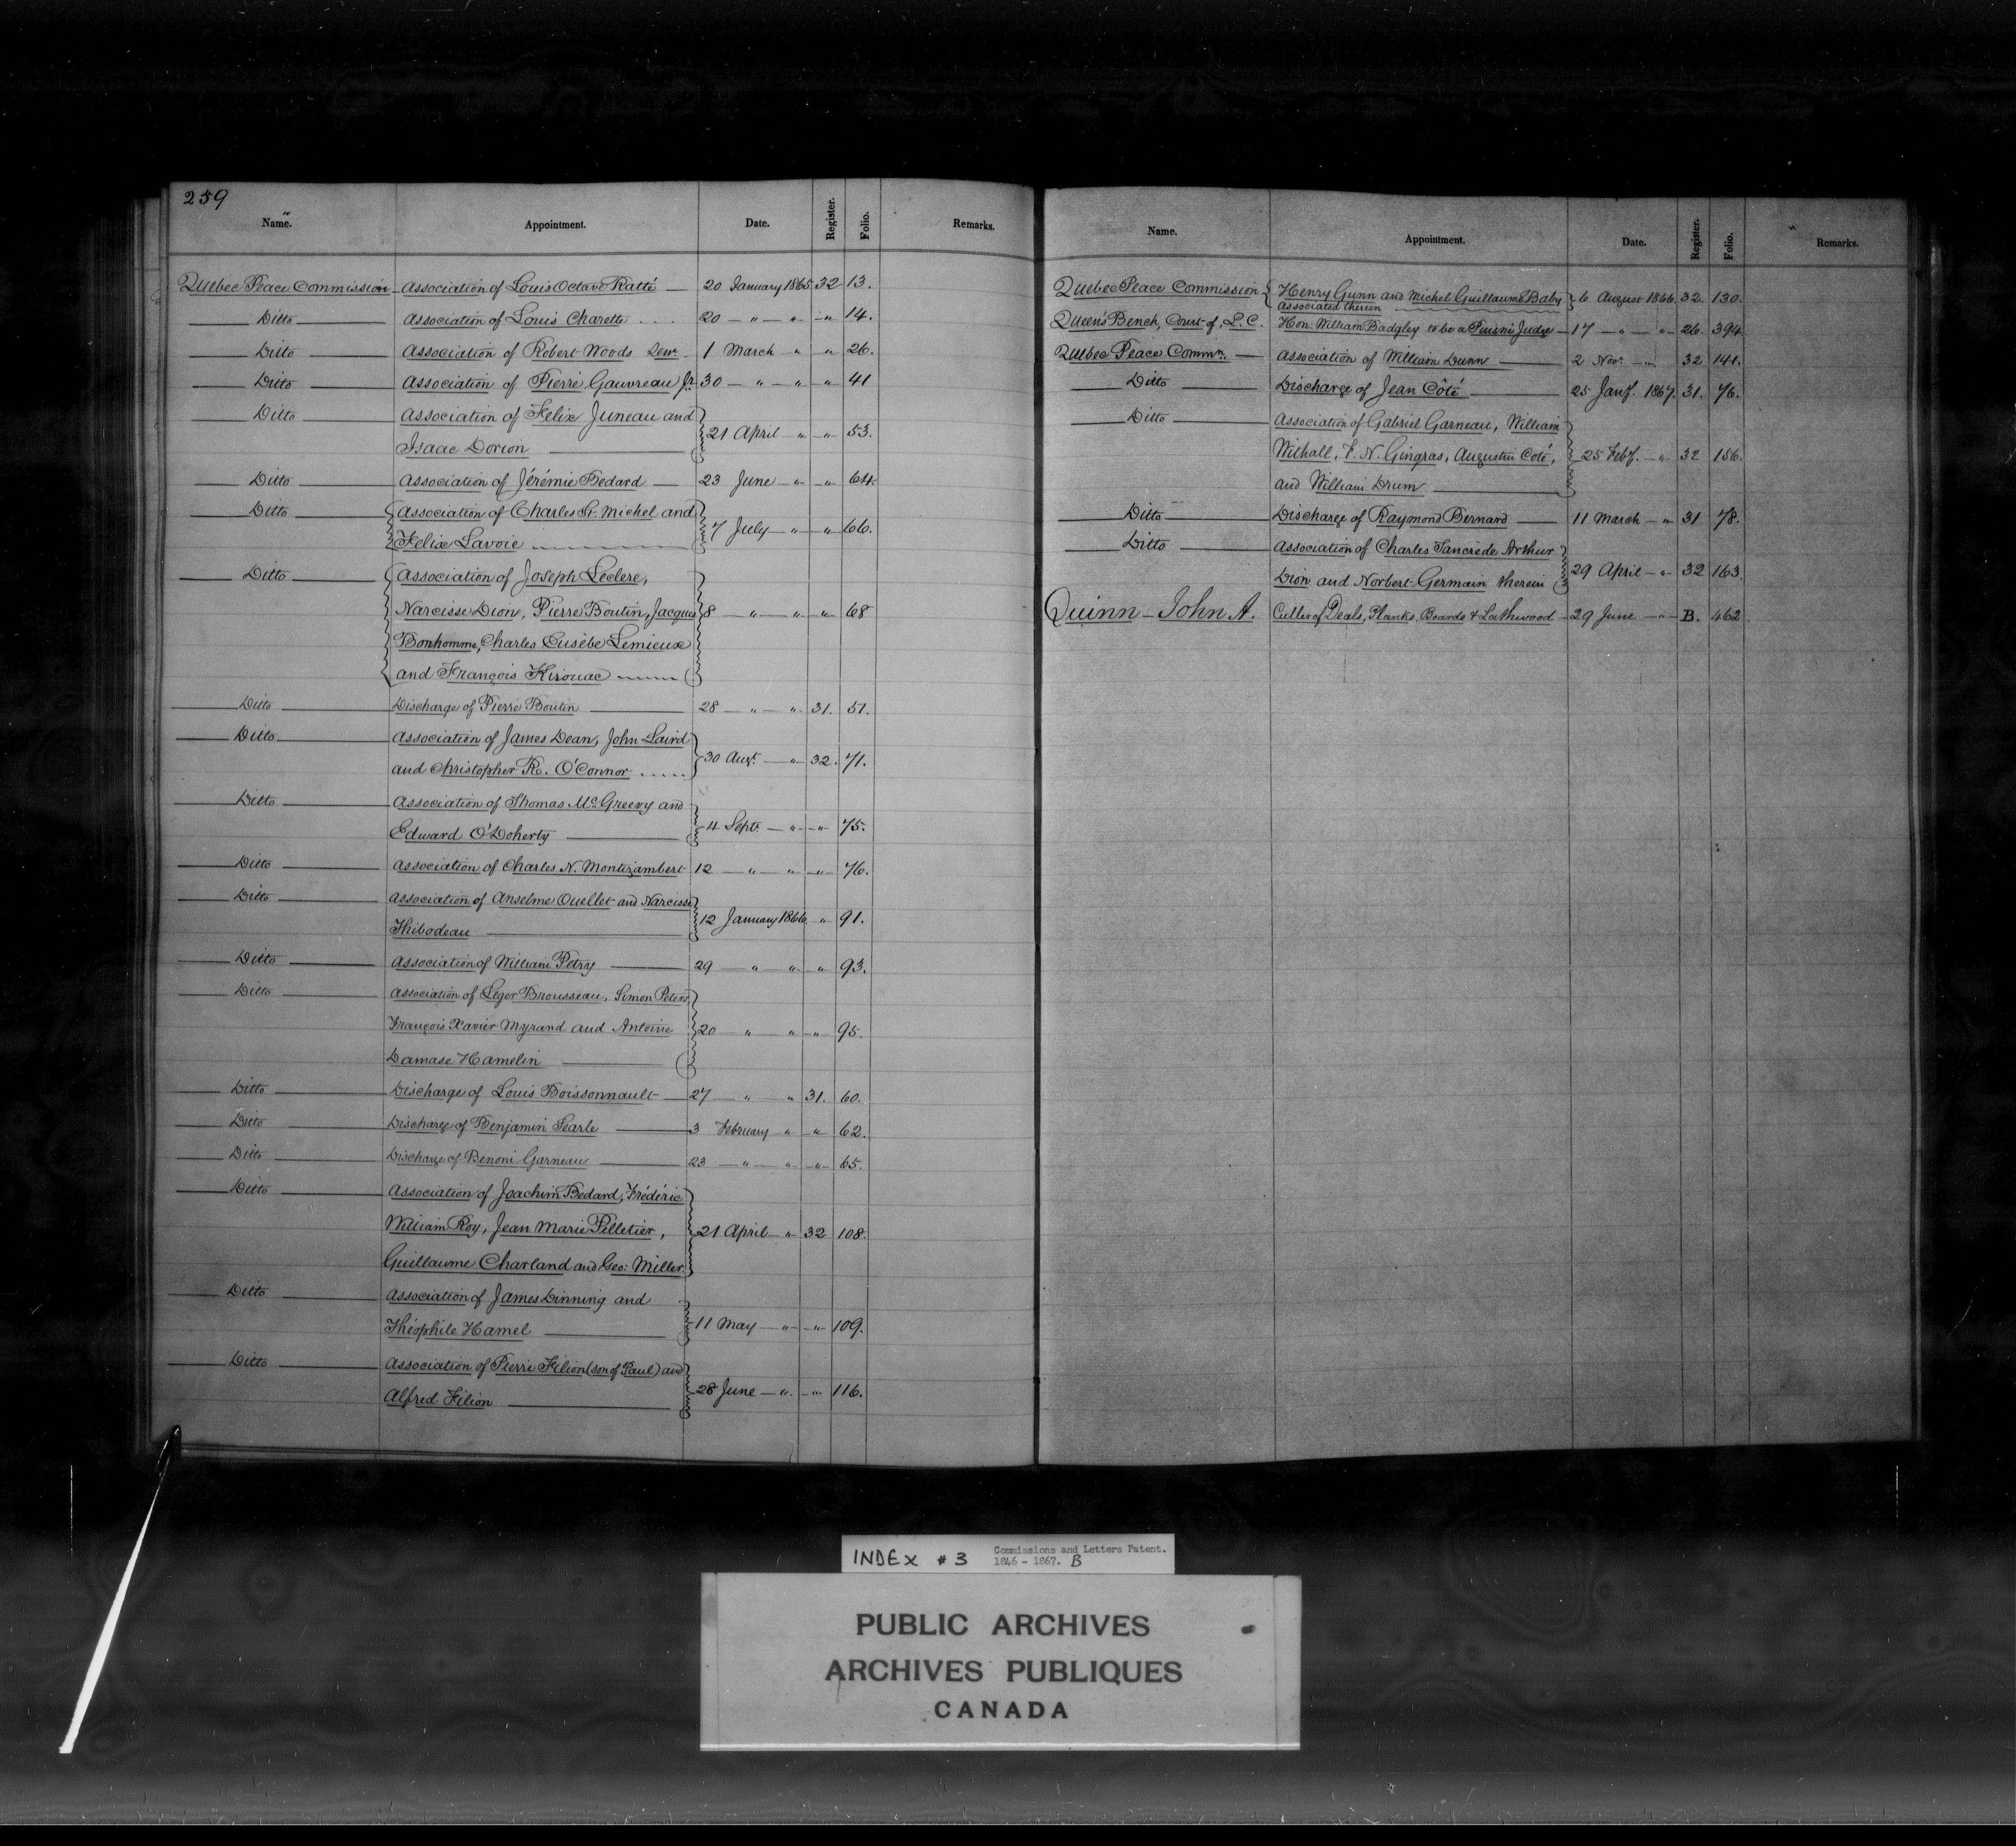 259
Name. Appointment. Date. Register. Folio. Remarks.
Quebec Peace Commission Association of Louis Octave Ratté 20 January 1865 32 13.
Ditto Association of Louis Charette 20 " " " 14.
Ditto Association of Robert Woods Senr. 1 March " " 26.
Ditto Association of Pierre Gauvreau Jr. 30 " " " 41
Ditto Association of Felix Juneau and
Isaac Dorion 21 April " " 53.
Ditto Association of Jérémie Bedard 23 June " " 64.
Ditto Association of Charles St. Michel and
Felix Lavoie 7 July " " 66.
Ditto Association of Joseph Leclerc,
Narcisse Dion, Pierre Boutin, Jacques 8 " " " 68
Bonhomme, Charles Eusèbe Lemieux
and François Kirouac
Ditto Discharge of Pierre Boutin 28 " " 31. 51.
Ditto Association of James Dean, John Laird
and Christopher R. O'Connor 30 Augt. " 32. 71.
Ditto Association of Thomas McGreevy and
Edward O'Doherty 4 Sept. " " 75.
Ditto Association of Charles N. Montizambert 12 " " " 76.
Ditto Association of Anselme Ouellet and Narcisse
Thibodeau 12 January 1866 " 91.
Ditto Association of William Petry 29 " " " 93.
Ditto Association of Léger Brousseau, Simon Peters,
François Xavier Myrand and Antoine 20 " " " 95.
Damase Hamelin
Ditto Discharge of Louis Boissonnault 27 " " 31. 60.
Ditto Discharge of Benjamin Searle 3 February " " 62.
Ditto Discharge of Benoni Garneau 23 " " " 65.
Ditto Association of Joachim Bedard, Frédéric
William Roy, Jean Marie Pelletier, 21 April " 32 108.
Guillaume Charland and Geo: Miller
Ditto Association of James Dinning and
Théophile Hamel 11 May " " 109.
Ditto Association of Pierre Filion (son of Paul) and
Alfred Filion 28 June " " 116.
Name. Appointment. Date. Register. Folio. Remarks.
Quebec Peace Commission Henry Gunn and Michel Guillaume Baby 6 August 1866. 32. 130.
Associated therein
Queen's Bench, Court of, L.C. Hon. William Badgley to be a Puisné Judge 17 " " 26. 394
Quebec Peace Commn. Association of William Dunn 2 Novr. " 32 141.
Ditto Discharge of Jean Côté 25 Jany. 1867. 31. 76.
Ditto Association of Gabriel Garneau, William
Withall, F. N. Gingras, Augustin Coté, 25 Feby. " 32 156.
and William Drum
Ditto Discharge of Raymond Bernard 11 March " 31 78.
Ditto Association of Charles Tancrède Arthur
Dion and Norbert Germain therein 29 April " 32 163.
Quinn John A. Culler of Deals, Planks, Boards & Lathwood 29 June " B. 462
INDEX # 3 Commissions and Letters Patent.
1846 - 1867. B
PUBLIC ARCHIVES
ARCHIVES PUBLIQUES
CANADA